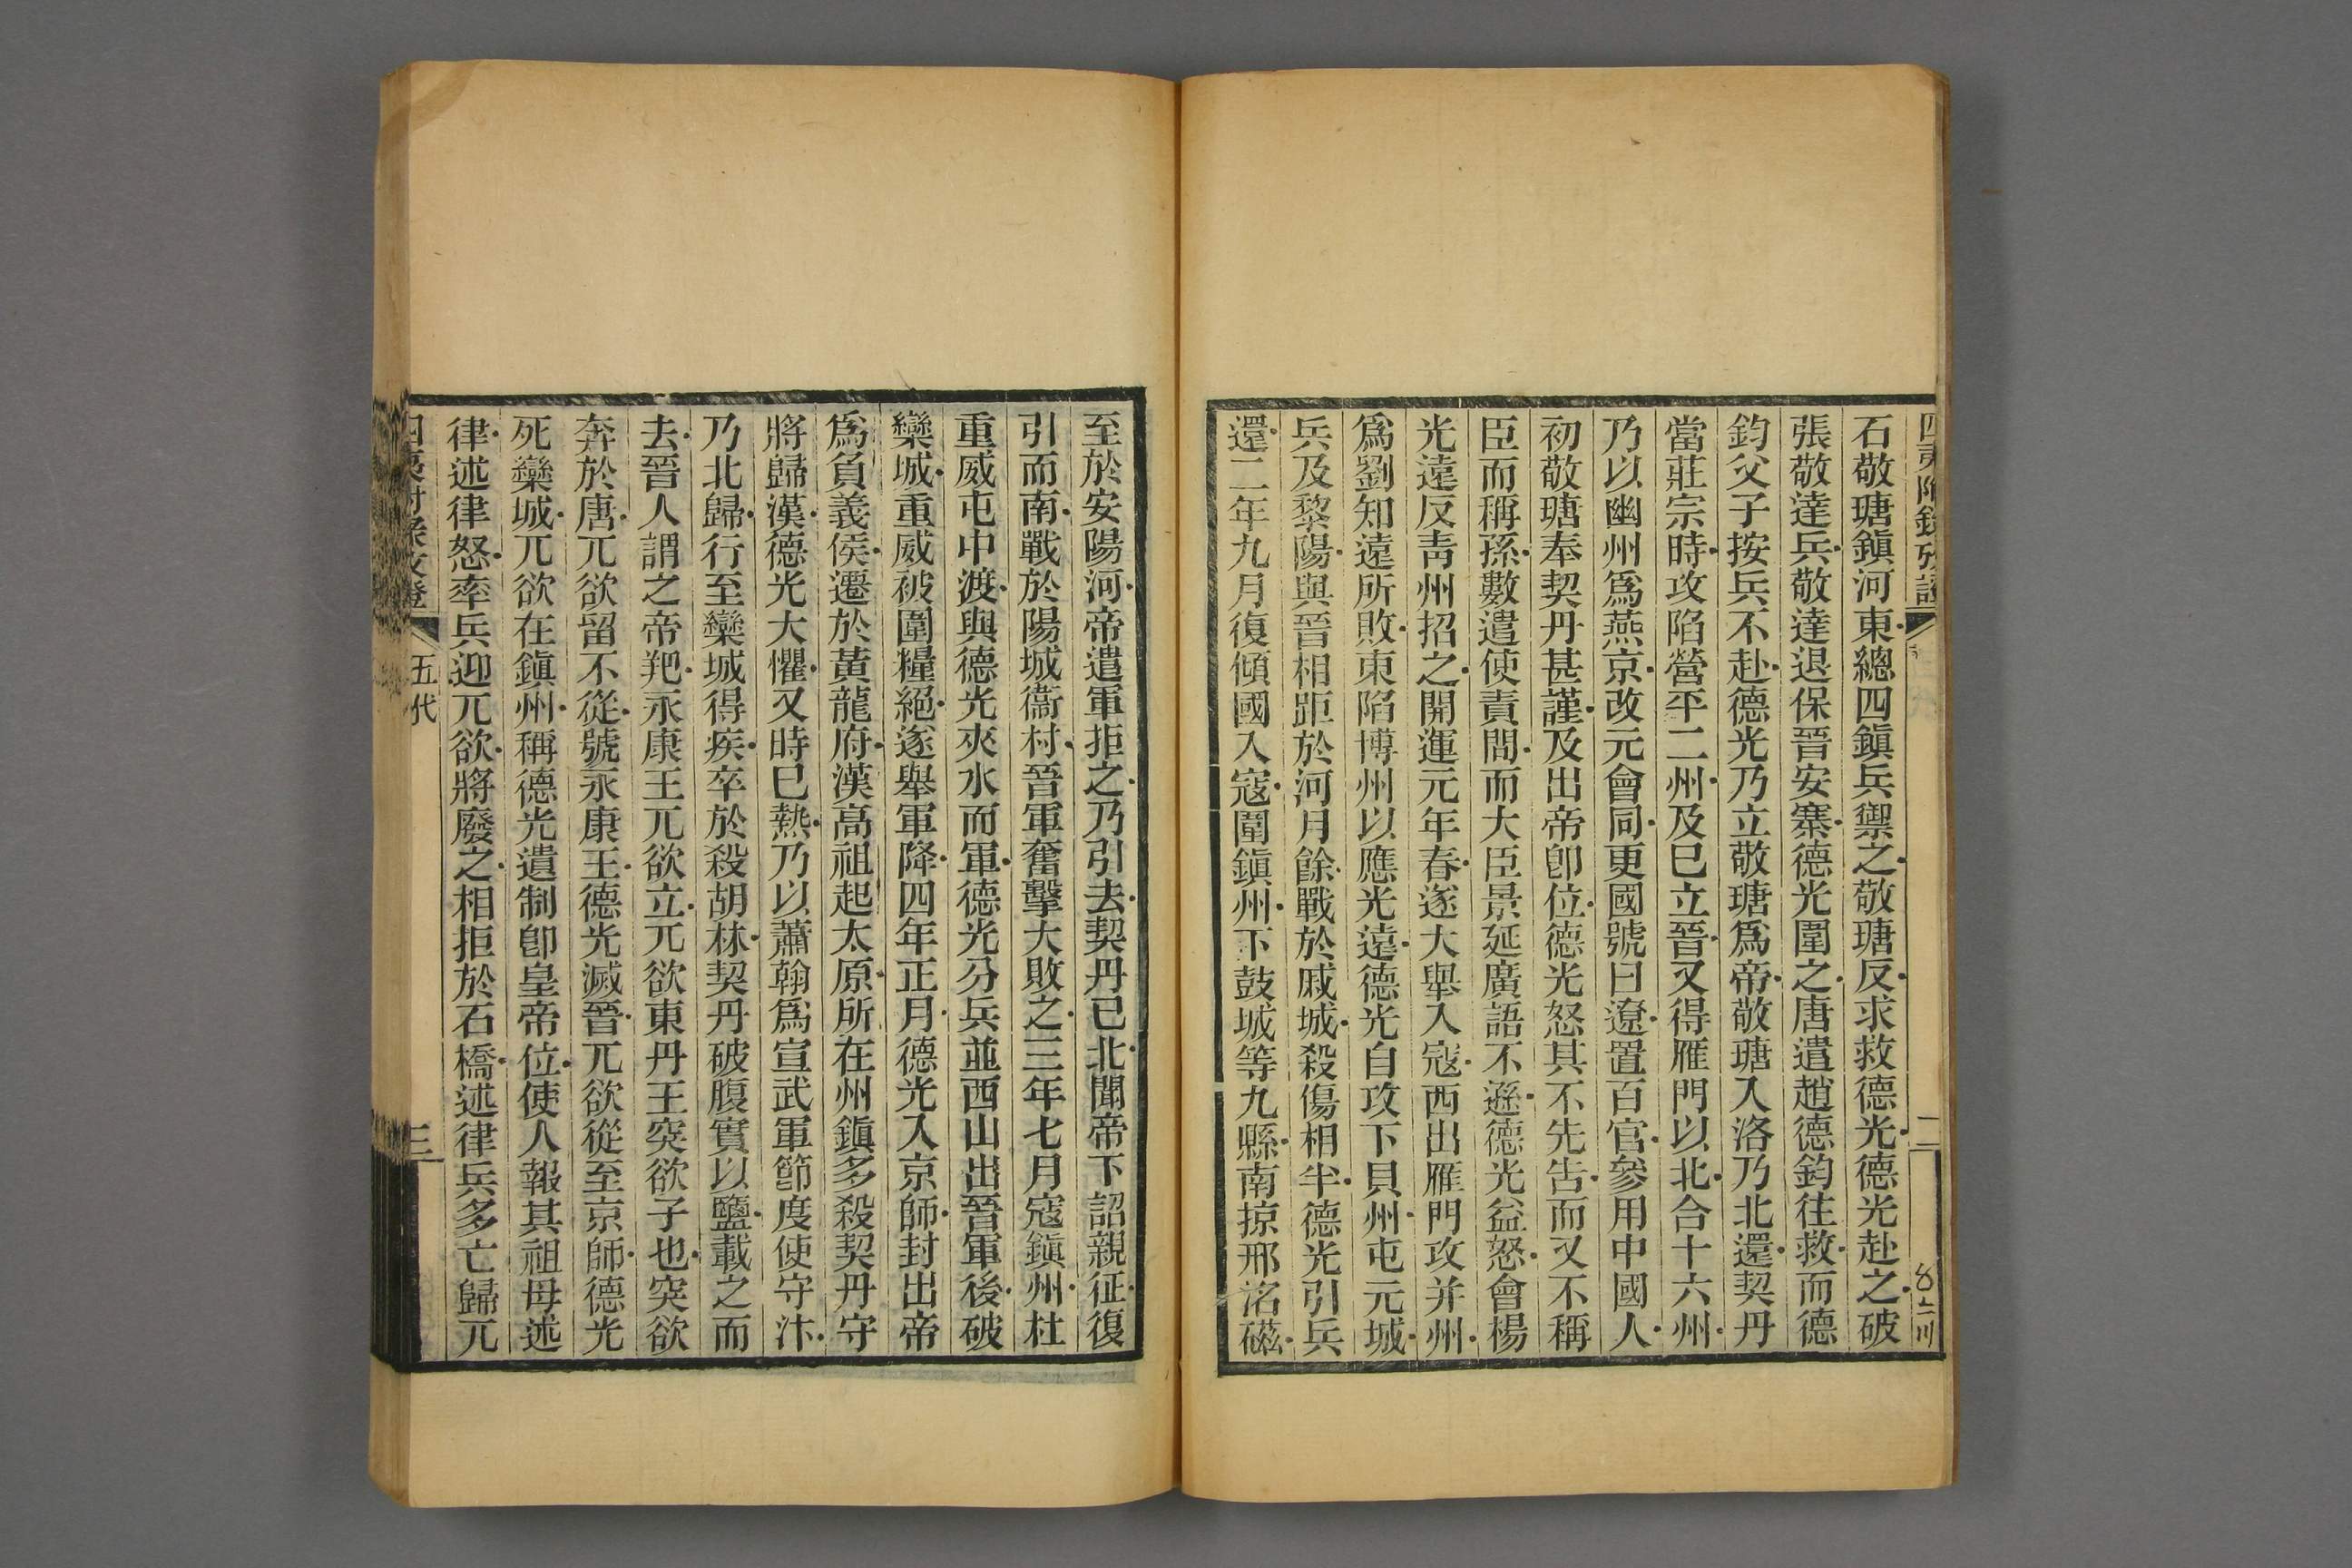 石敬瑭鎮河東總四鎮兵禦之敬瑭反求救德光德光赴之破
張敬達兵敬達退保晉安寨德光圍之唐遣趙德鈞往救而德
鈞父子按兵不赴德光乃立敬瑭爲帝敬瑭入洛乃北還契丹
當莊宗時攻陷營平二州及已立晉又得雁門以北合十六州
乃以幽州爲燕京改元會同更國號曰遼置百官參用中國人
初敬瑭奉契丹甚謹及出帝卽位德光怒其不先告而又不稱
臣而稱孫數遣使責問而大臣景延廣語不遜德光益怒會楊
光遠反青州招之開運元年春遂大舉入寇西出雁門攻并州
爲劉知遠所敗東陷博州以應光遠德光自攻下貝州屯元城
兵及黎陽與晉相距於河月餘戰於戚城殺傷相半德光引兵
還二年九月復傾國入寇圍鎮州下鼓城等九縣南掠邢洺磁
至於安陽河帝遣軍拒之乃引去契丹已北聞帝下詔親征復
引而南戰於陽城衞村晉軍奮擊大敗之三年七月寇鎮州杜
重威屯中渡與德光夾水而軍德光分兵並西山出晉軍後破
欒城重威被圍糧絕遂舉軍降四年正月德光入京師封出帝
爲負義侯遷於黃龍府漢高祖起太原所在州鎮多殺契丹守
將歸漢德光大懼又時已熱乃以蕭翰爲宣武軍節度使守汴
乃北歸行至欒城得疾卒於殺胡林契丹破腹實以鹽載之而
去晉人謂之帝羓永康王兀欲立兀欲東丹王突欲子也突欲
奔於唐兀欲留不從號永康王德光滅晉兀欲從至京師德光
死欒城兀欲在鎮州稱德光遺制卽皇帝位使人報其祖母述
律述律怒率兵迎兀欲將廢之相拒於石橋述律兵多亡歸兀
五代
三